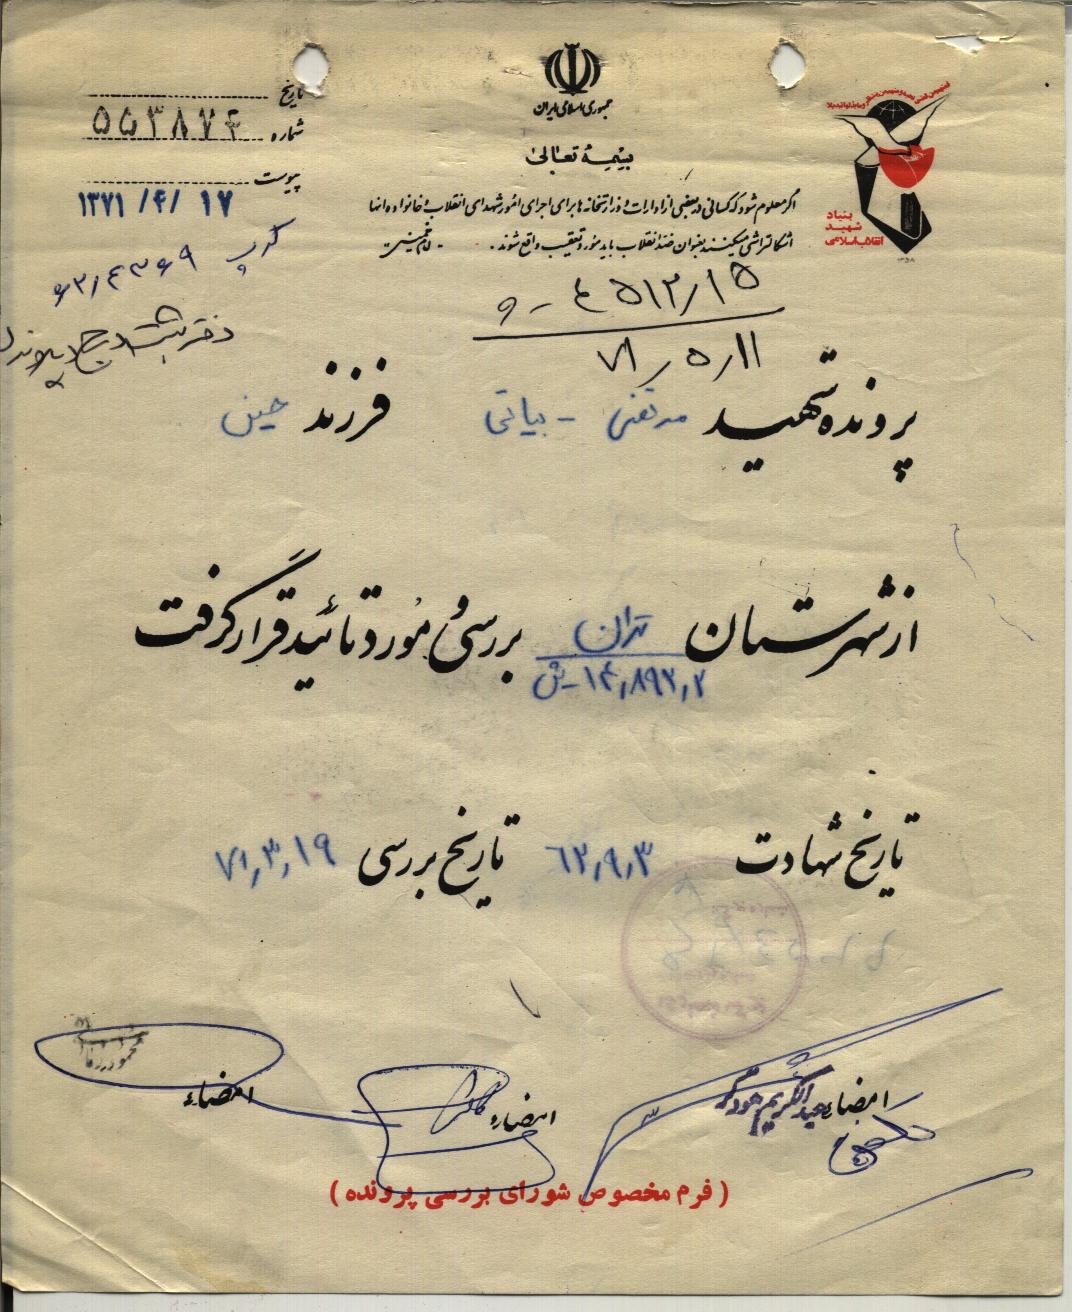 جمهوری اسلامی ایران
بسمه تعالی
تاریخ
شماره ۵۵۳۸۷۴
پیوست
۱۳۷۱ /۴/ ۱۷
بنیاد
شهید
انقلاب اسلامی
۱۳۵۸
اگر معلوم شود که کسانی در بعضی از ادارات و وزارتخانه ها برای اجرای امور شهدای انقلاب و خانواده آنها
اشکالتراشی میکنند بعنوان ضد انقلاب باید مورد تعقیب واقع شوند. - امام خمینی -
۶۲/۴۳۶۹
۴۵۱۲/۱۵ - و
۷۱/۵/۱۱
پرونده شهید مرتضی - بیاتی فرزند حسین
از شهرستان تهران بررسی و مورد تائید قرار گرفت
۱۴/۸۹۲/۲-ش
تاریخ شهادت ۶۲/۹/۳ تاریخ بررسی ۷۱/۳/۱۹
امضاء عبدالکریم
امضاء
امضاء
( فرم مخصوص شورای بررسی پرونده )